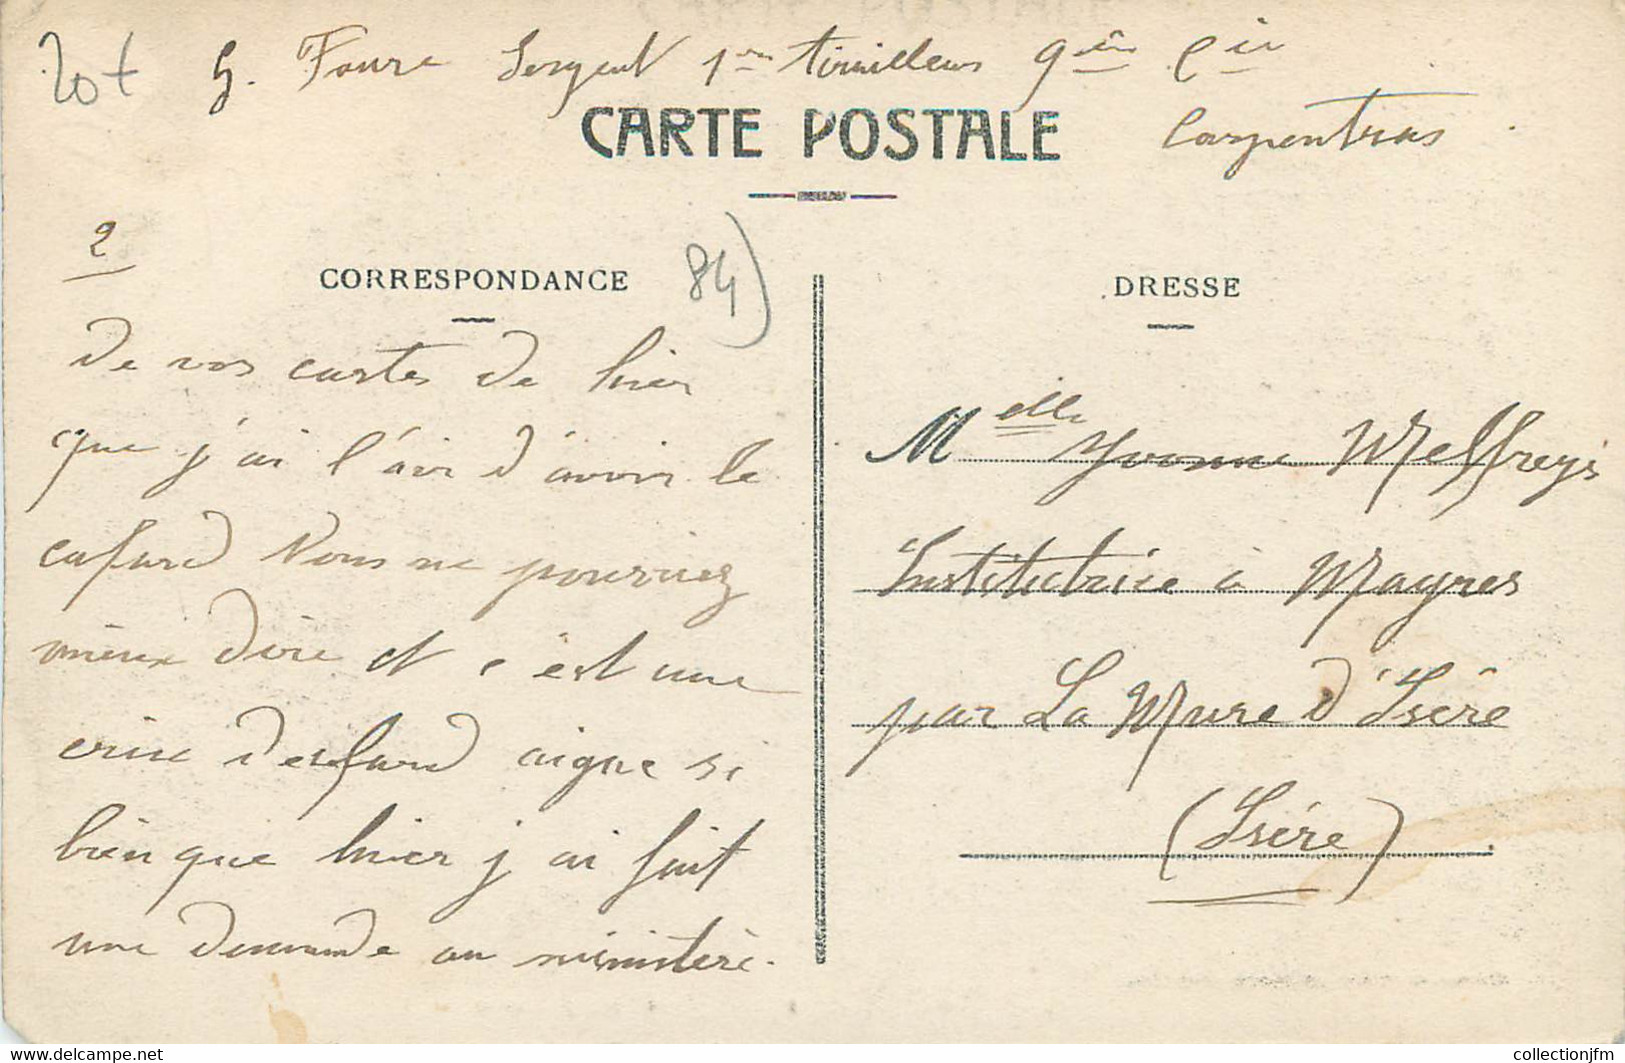 20 t
G. Faure Sergent 1er tirailleurs 9ème Cie
Carpentras
CARTE POSTALE
2
CORRESPONDANCE
84)
de vos cartes de hier
que j'ai l'air d'avoir le
cafard Vous ne pourriez
mieux dire et c'est une
crise de cafard aigue si
bien que hier j ai fait
une demande au ministère.
DRESSE
Melle Yvonne
Institutrice à Mayres
par La Mure d'Isère
(Isère)
collectionjfm